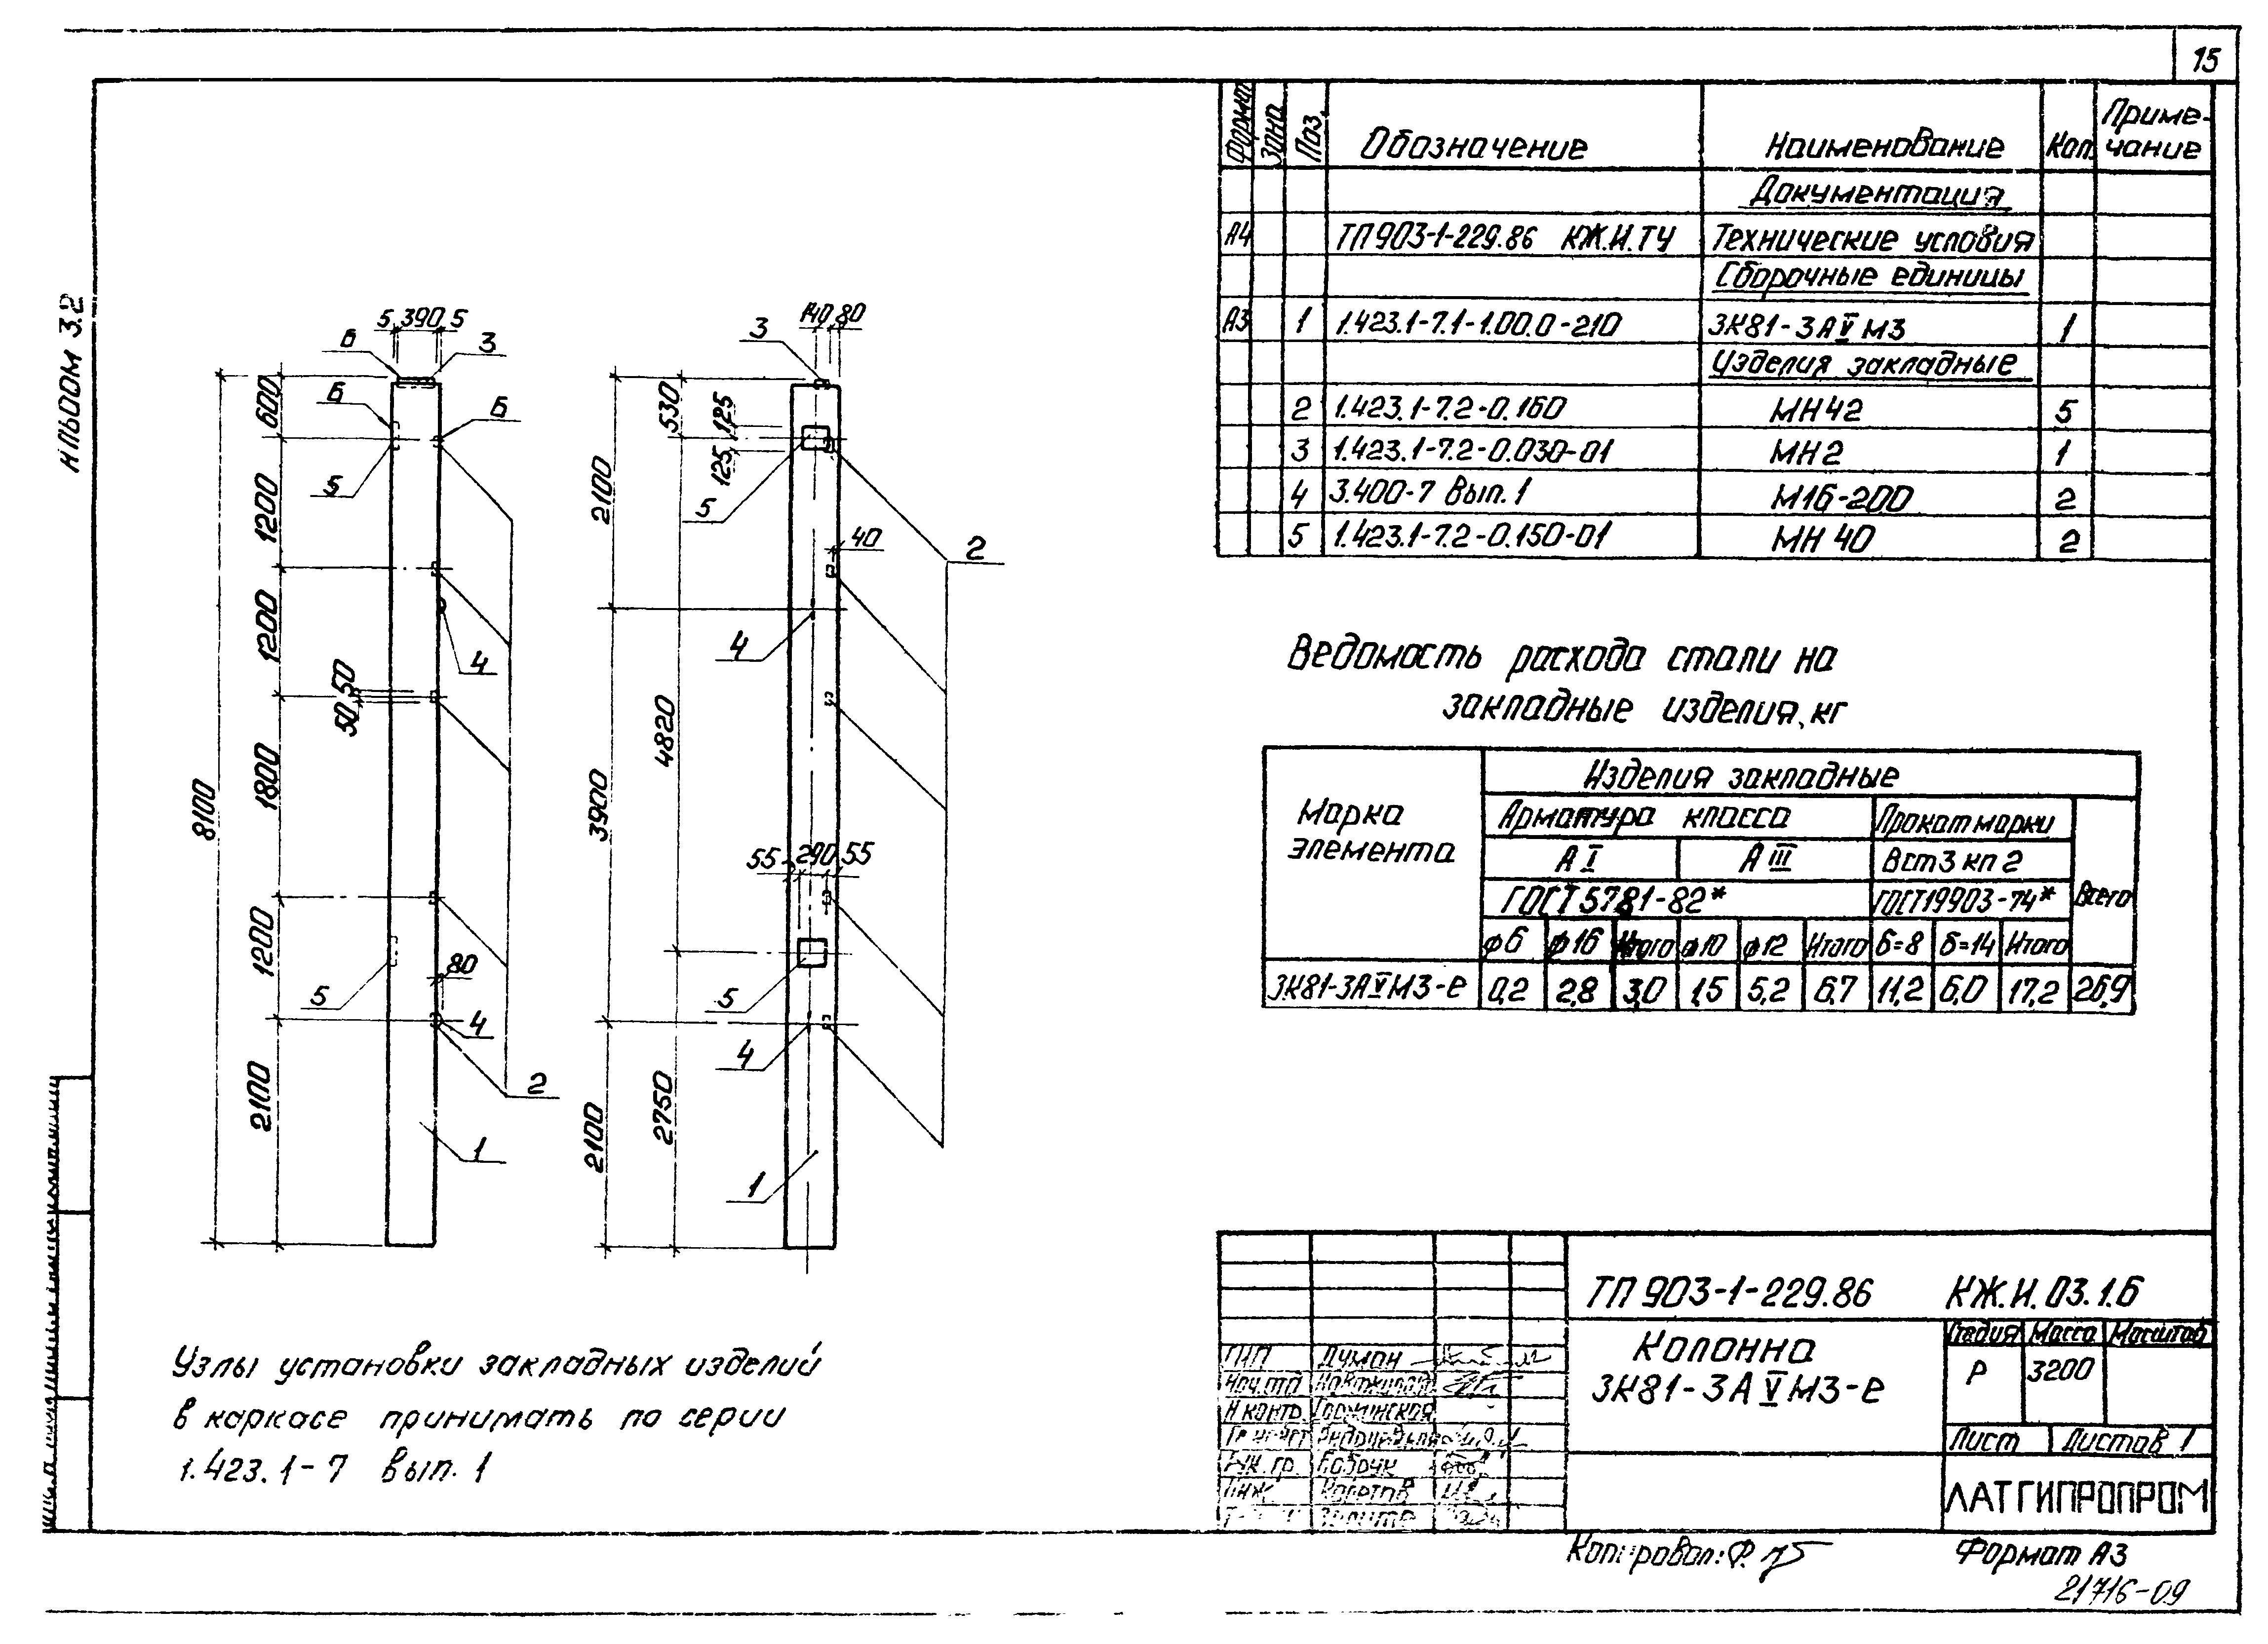 15
Альбом 3.2
Формат Зона Поз. Обозначение Наименование Кол. Приме-чание
Документация
А4 ТП 903-1-229.86 КЖ.И.ТУ Технические условия
Сборочные единицы
А3 1 1.423.1-7.1-1.00.0-210 3К81-3АⅤМ3 1
Изделия закладные
2 1.423.1-7.2-0.160 МН42 5
3 1.423.1-7.2-0.030-01 МН2 1
4 3.400-7 Вып. 1 М16-200 2
5 1.423.1-7.2-0.150-01 МН 40 2
5 390 5
Б 3
Б Б
5
600
1200
1200
50 50
4
1800
8100
1200
80
5
4
2100
2
1
140 80
3
530
125
125
2100
5
40
2
4
4820
3900
55 290 55
5
4
2750
2100
1
Ведомость расхода стали на
закладные изделия, кг
Марка элемента
Изделия закладные
Арматура класса Прокат марки
А Ⅰ А Ⅲ Вст3 кп 2
ГОСТ 5781-82* ГОСТ19903-74* Всего
ф6 ф16 Итого ф10 ф12 Итого б=8 б=14 Итого
3К81-3АⅤМ3-е 0,2 2,8 3,0 1,5 5,2 6,7 11,2 6,0 17,2 26,9
Узлы установки закладных изделий
в каркасе принимать по серии
1.423.1-7 вып. 1
ТП 903-1-229.86 КЖ.И.03.1.6
Колонна
3К81-3АⅤМ3-е
Стадия Масса Масштаб
Р 3200
Лист Листов 1
ЛАТГИПРОПРОМ
ГИП Думан
Нач.отд
Н контр.
Рук. гр.
Инж
Копировал:
Формат А3
21716-09